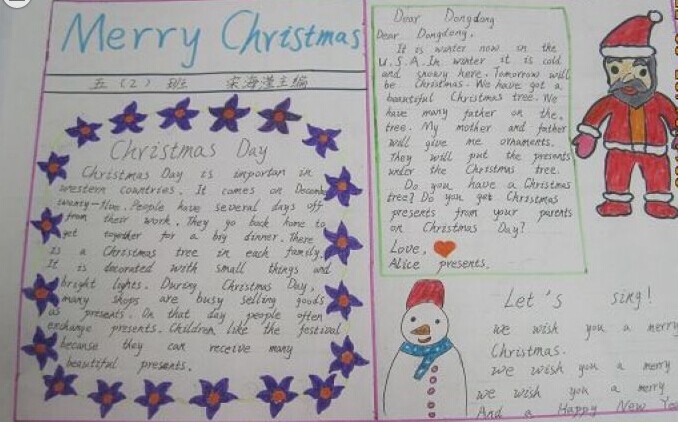 Merry Christmas
五（2）班 宋海滢主编
Christmas Day
Christmas Day is importan in
western countries. It comes on December
twenty-five. People have several days off
from their work. They go back home to
get together for a big dinner. There
is a Christmas tree in each family.
It is decorated with small things and
bright lights. During Christmas Day,
many shops are busy selling goods
as presents. On that day people often
exchange presents. Children like the festival
because they can receive many
beautiful presents.
Dear Dongdong
Dear Dongdong,
It is winter now in the
U.S.A. In winter it is cold
and snowy here. Tomorrow will
be Christmas. We have got a
beautiful Christmas tree. We
have many father on the.
tree. My mother and father
will give me ornaments.
They will put the presents
under the Christmas tree.
Do you have a Christmas
tree? Do you get Christmas
presents from your parents
on Christmas Day?
Love,
Alice presents.
Let's sing!
we wish you a merry
Christmas.
we wish you a merry
we wish you a merry
And a Happy New